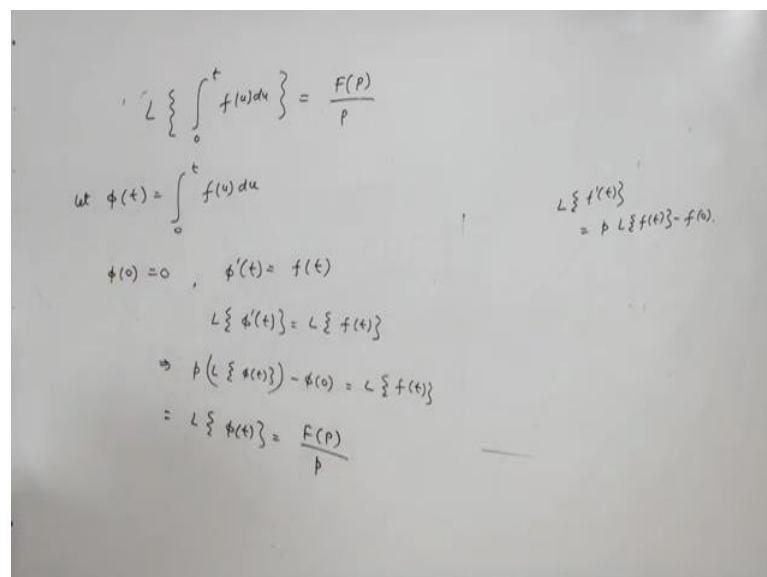 L{ ∫₀ᵗ f(u)du } = F(p)/p
let φ(t) = ∫₀ᵗ f(u) du
L{ f'(t)}
= p L{f(t)} - f(0).
φ(0) = 0 , φ'(t) = f(t)
L{ φ'(t)} = L{ f(t)}
⇒ p(L{ φ(t)}) - φ(0) = L{ f(t)}
= L{ φ(t)} = F(p)/p